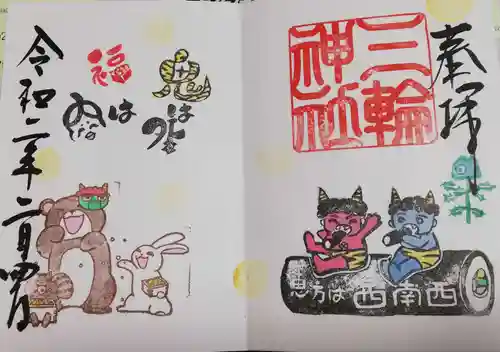 奉拝
三輪
神社
恵方は西南西
福は
鬼は
令和二年二月四日